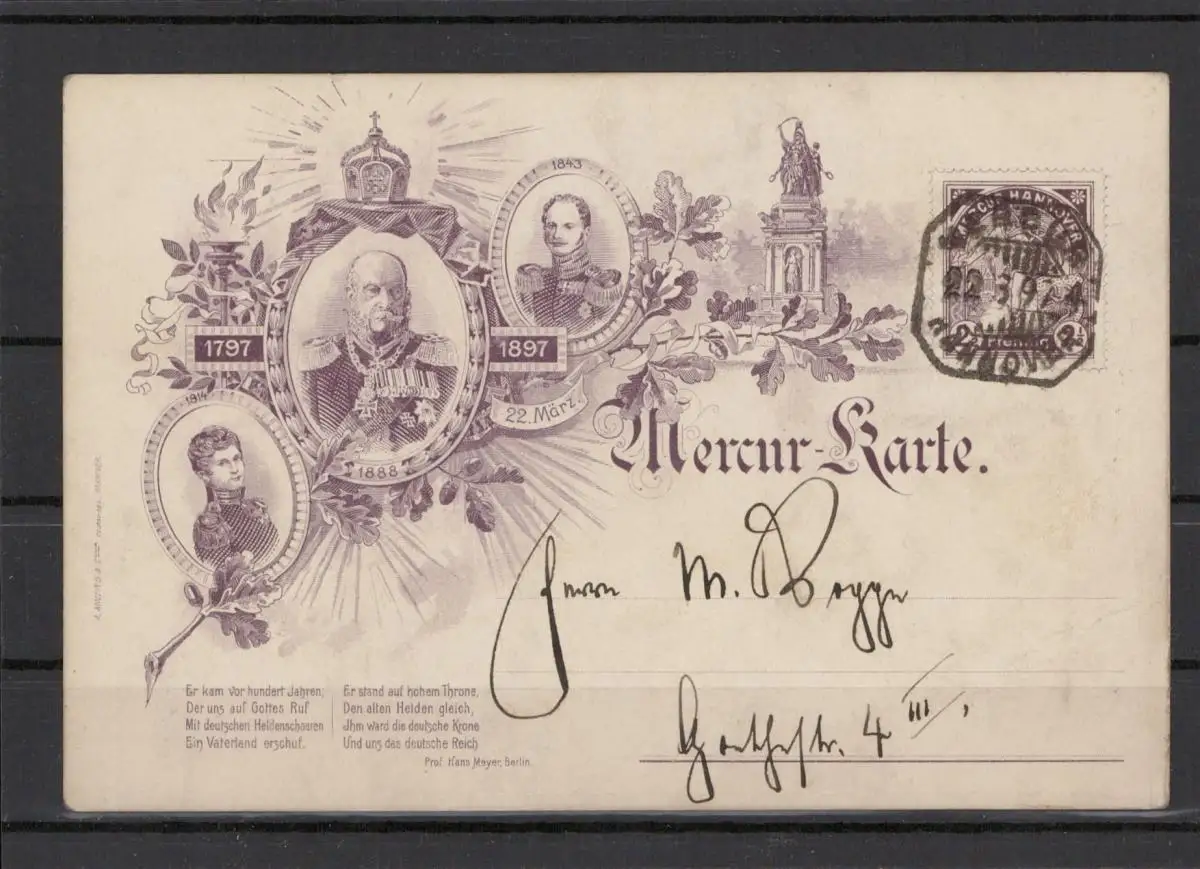 1843
1797
1897
22. März.
1814
1888
Mercur-Karte.
HANNOVER
22 3 9
Pfennig
Herrn M. Rogge
Goethestr. 4 III,
Er kam vor hundert Jahren,
Der uns auf Gottes Ruf
Mit deutschen Heldenscharen
Ein Vaterland erschuf.
Er stand auf hohem Throne,
Den alten Helden gleich,
Ihm ward die deutsche Krone
Und uns das deutsche Reich
Prof. Hans Meyer, Berlin.